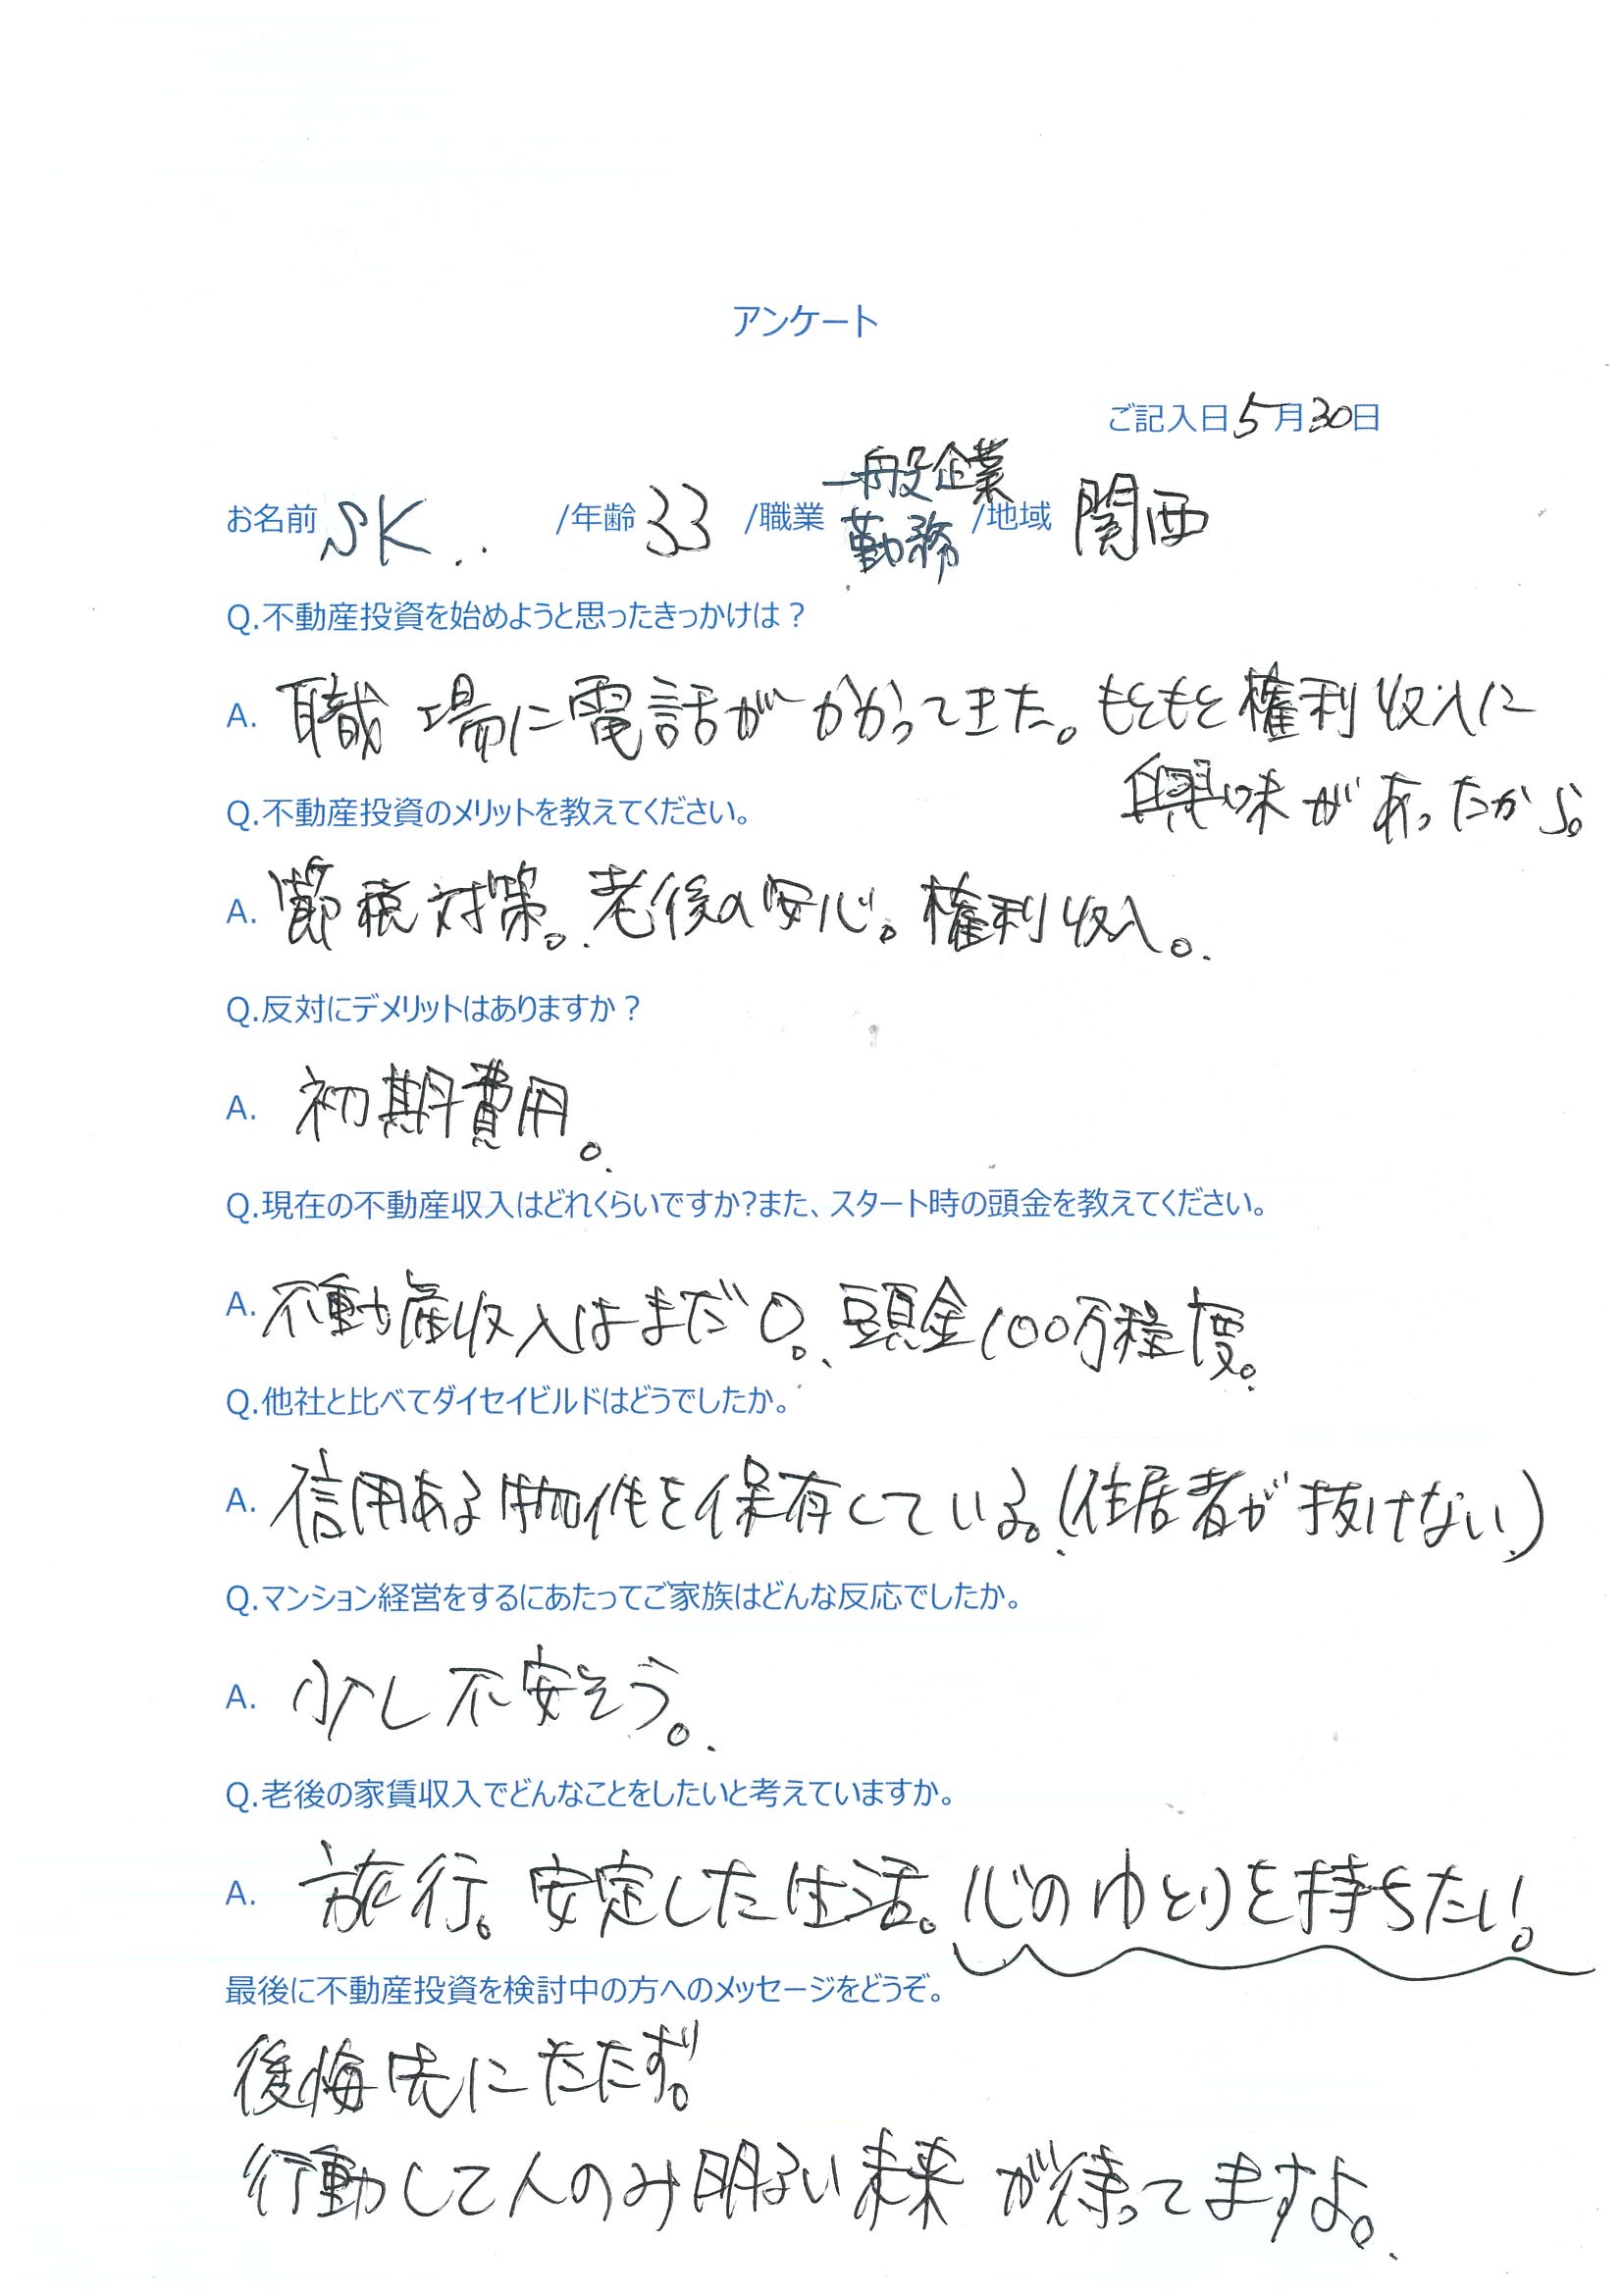 アンケート
ご記入日5月30日
お名前 SK /年齢 33 /職業 一般企業勤務 /地域 関西
Q.不動産投資を始めようと思ったきっかけは？
A. 職場に電話がかかってきた。もともと権利収入に
興味があったから。
Q.不動産投資のメリットを教えてください。
A. 節税対策。老後の安心。権利収入。
Q.反対にデメリットはありますか？
A. 初期費用。
Q.現在の不動産収入はどれくらいですか?また、スタート時の頭金を教えてください。
A. 不動産収入はまだ0。頭金100万程度。
Q.他社と比べてダイセイビルドはどうでしたか。
A. 信用ある物件を保有している。(住居者が抜けない)
Q.マンション経営をするにあたってご家族はどんな反応でしたか。
A. 少し不安そう。
Q.老後の家賃収入でどんなことをしたいと考えていますか。
A. 旅行。安定した生活。心のゆとりを持ちたい。
最後に不動産投資を検討中の方へのメッセージをどうぞ。
後悔先にたたず。
行動して人のみ明るい未来が待ってますよ。